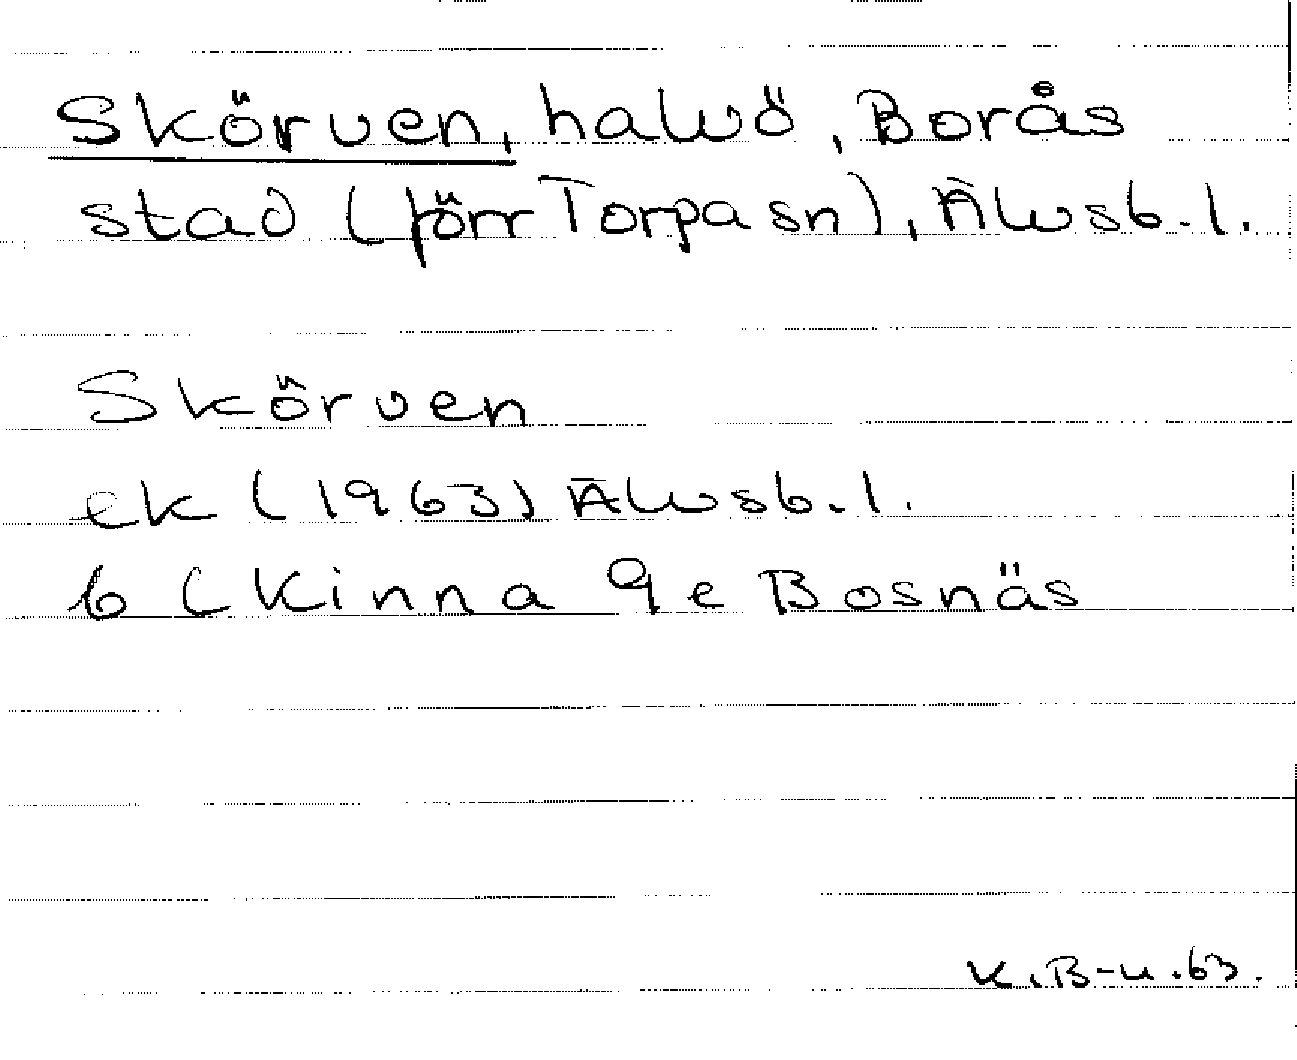 Skörven, halvö, Borås
stad (förr Torpa sn), Älvsb. l.
Skörven
ek (1963) Älvsb. l.
6 ( Kinna 9 e Bosnäs
K. B-n. 63.